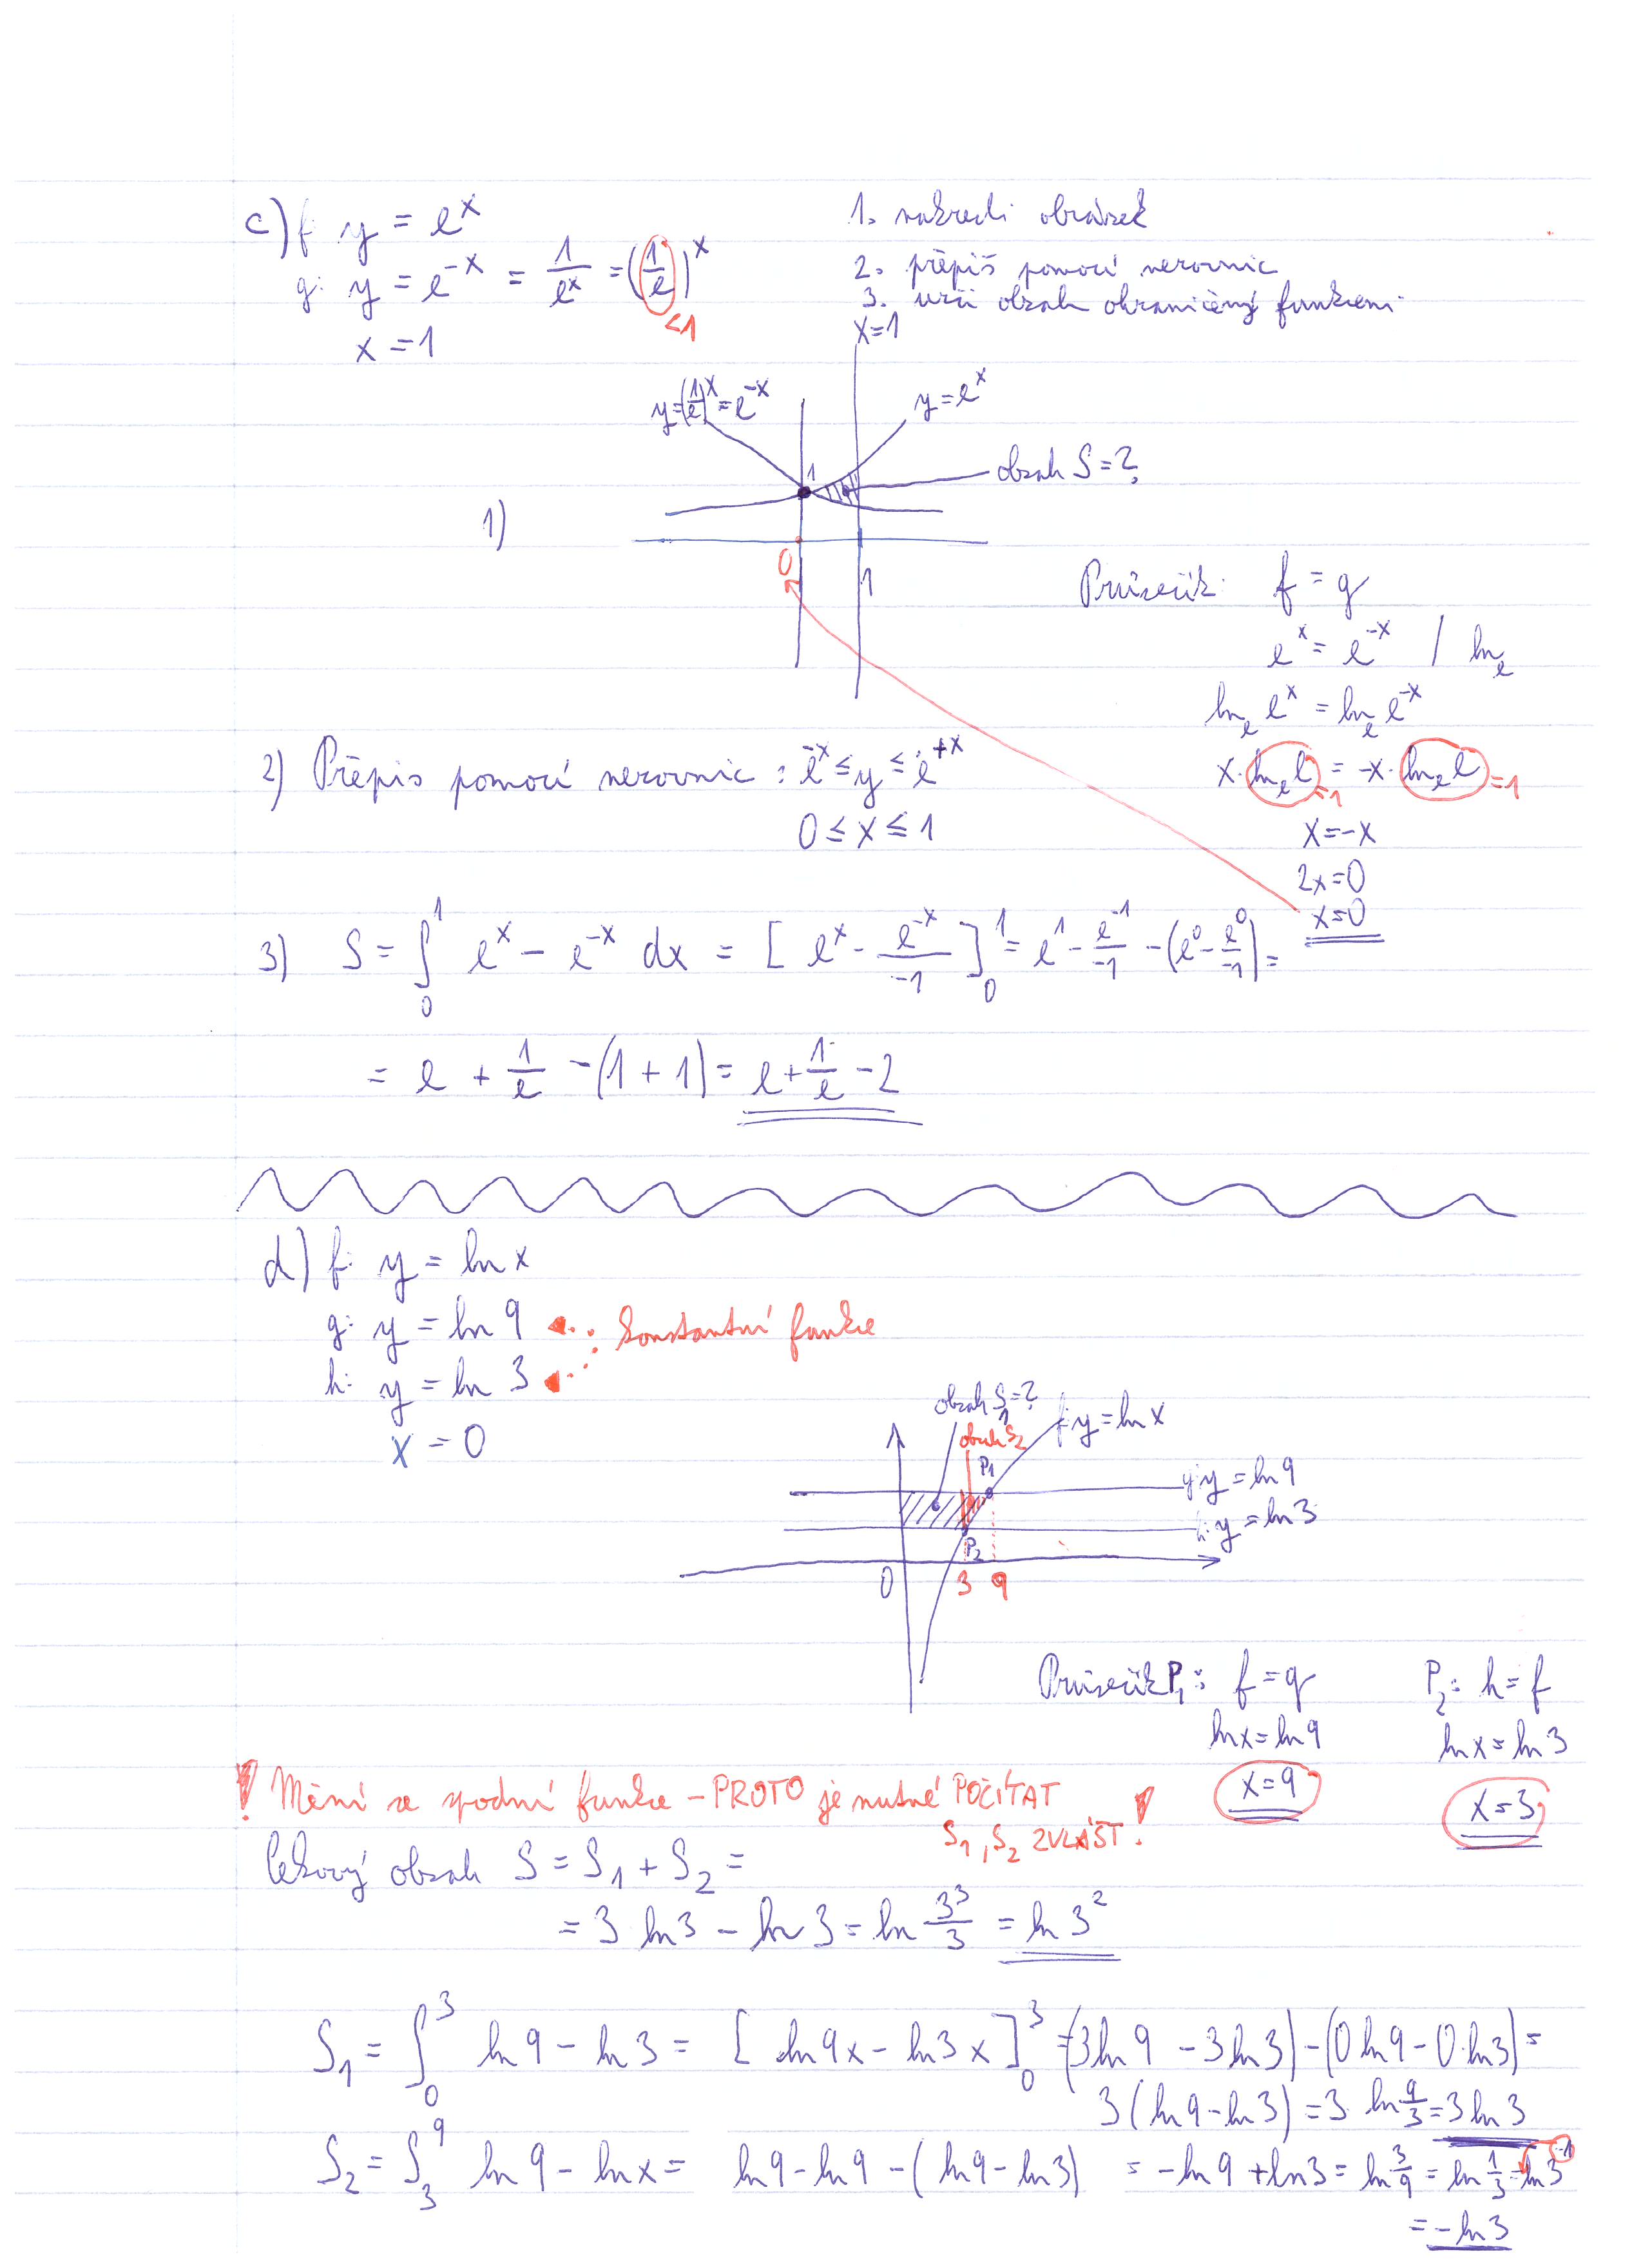 c) f: y = e^x
g: y = e^-x = 1/e^x = (1/e)^x
<1
x = 1
1. nakresli obrázek
2. přepiš pomocí nerovnic
3. urči obsah ohraničený funkcemi
x=1
y=(1/e)^x = e^-x
y = e^x
1
obsah S = ?
1)
0
1
Průsečík: f = g
e^x = e^-x / ln_e
ln_e e^x = ln_e e^-x
x · ln_e e = -x · ln_e e
=1 =1
x = -x
2x = 0
x = 0
2) Přepis pomocí nerovnic : e^-x ≤ y ≤ e^+x
0 ≤ x ≤ 1
3) S = ∫_0^1 e^x - e^-x dx = [ e^x - e^-x/-1 ]_0^1 = e^1 - e^-1/-1 - (e^0 - e^0/-1) =
= e + 1/e - (1 + 1) = e + 1/e - 2
d) f: y = ln x
g: y = ln 9
h: y = ln 3
konstantní funkce
x = 0
obsah S_1 = ?
obsah S_2
f: y = ln x
P_1
g: y = ln 9
h: y = ln 3
P_2
0 3 9
Průsečík P_1: f = g
ln x = ln 9
x = 9
P_2: h = f
ln x = ln 3
x = 3
! Mění se spodní funkce - PROTO je nutné POČÍTAT
S_1, S_2 ZVLÁŠT !
Celkový obsah S = S_1 + S_2 =
= 3 ln 3 - ln 3 = ln 3^3/3 = ln 3^2
S_1 = ∫_0^3 ln 9 - ln 3 = [ ln 9x - ln 3x ]_0^3 = (3 ln 9 - 3 ln 3) - (0 ln 9 - 0·ln 3) =
3 (ln 9 - ln 3) = 3 · ln 9/3 = 3 ln 3
S_2 = ∫_3^9 ln 9 - ln x = ln 9 - ln 9 - ( ln 9 - ln 3) = - ln 9 + ln 3 = ln 3/9 = ln 1/3 = ln 3^-1
= - ln 3